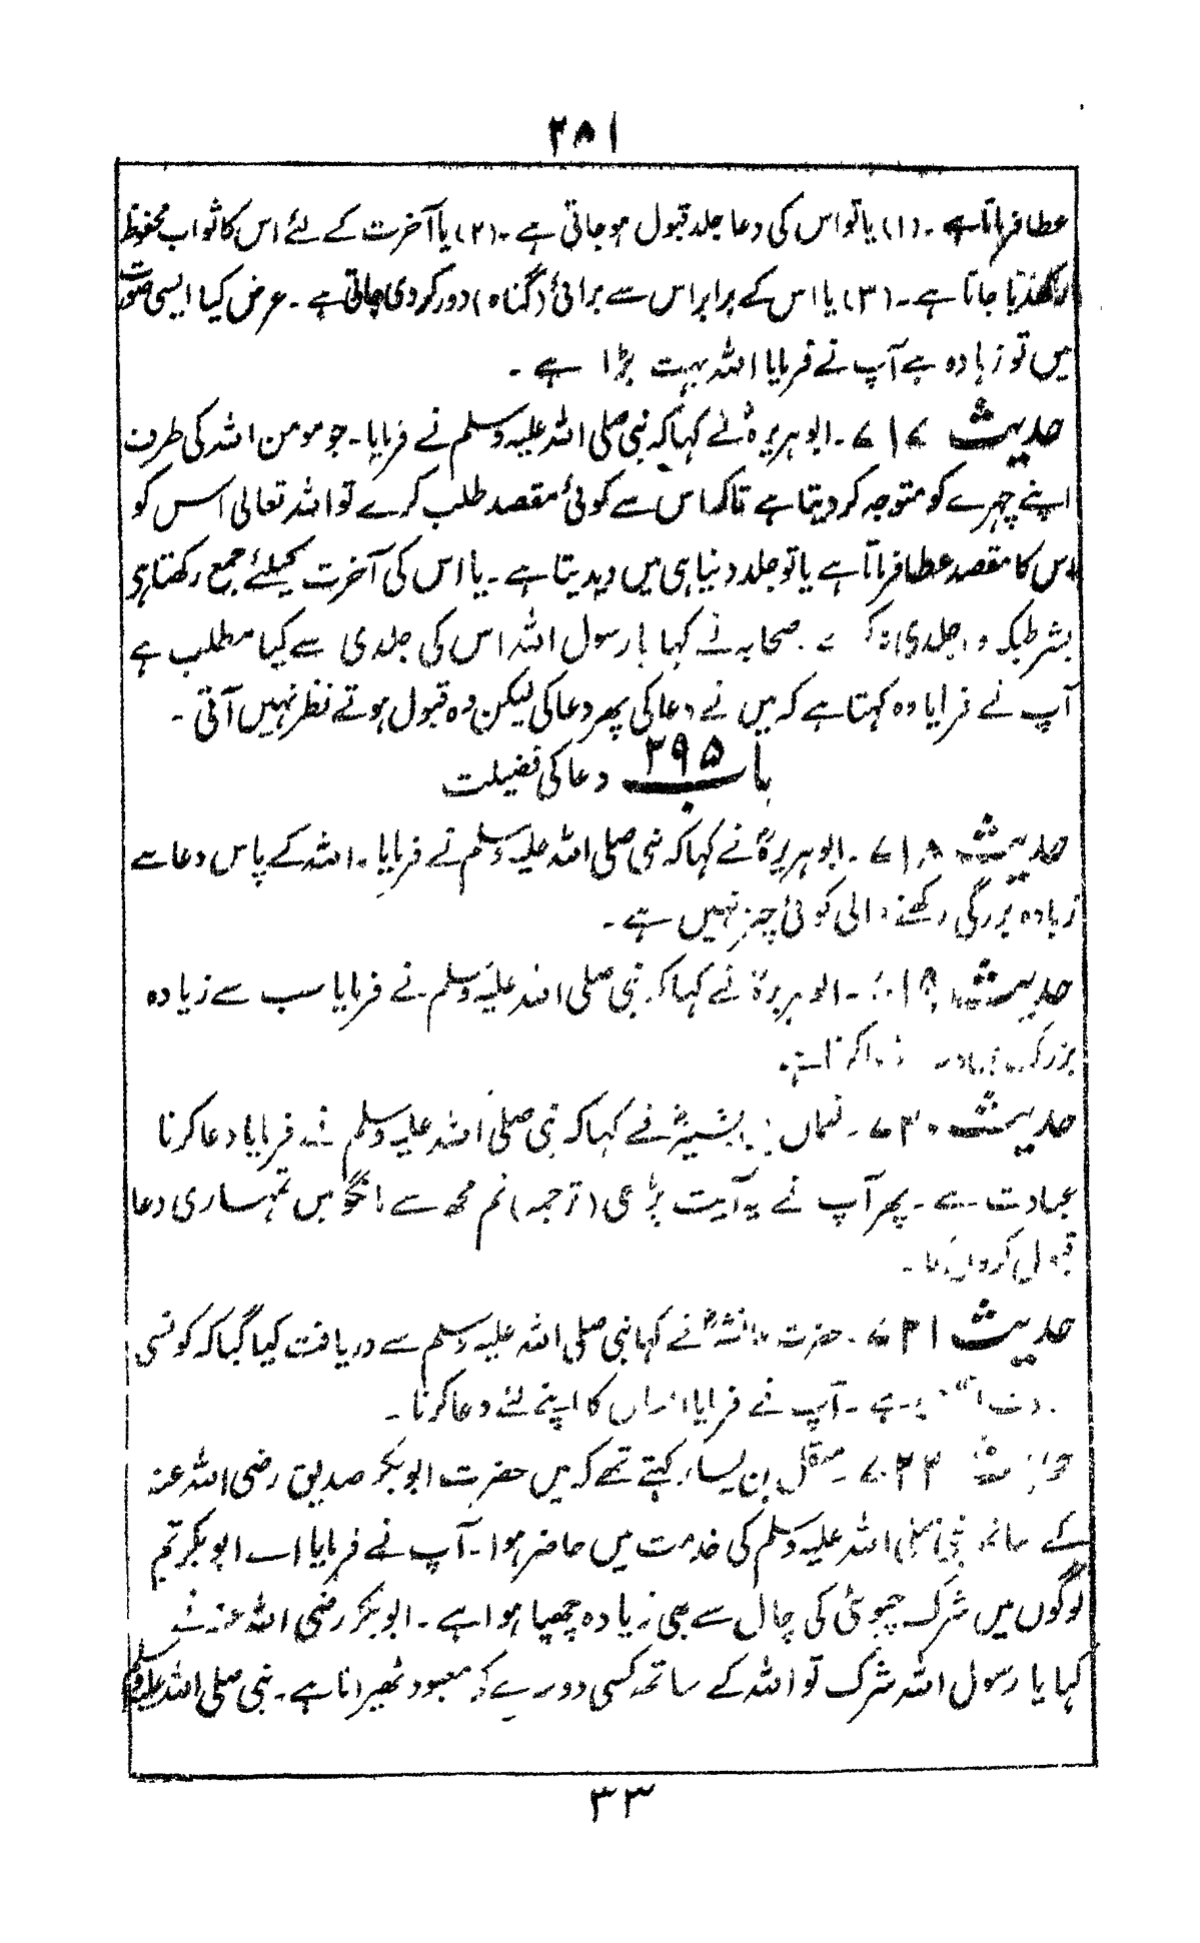 ۲۵۱
عطا فرماتا ہے ۔ (۱) یا تو اس کی دعا جلد قبول ہوجاتی ہے ۔ (۲) یا آخرت کے لئے اس کا ثواب محفوظ
جاتا ہے ۔ (۳) یا اس کے برابر اس سے برائی (گناہ) دور کردی جاتی ہے ۔ عرض کیا ایسی صورت
میں تو زیادہ ہے آپ نے فرمایا اللہ بہت بڑا ہے ۔
حدیث ۷۱۷ ۔ ابوہریرہؓ نے کہا کہ نبی صلی اللہ علیہ وسلم نے فرمایا ۔ جو مومن اللہ کی طرف
اپنے چہرے کو متوجہ کردیتا ہے تاکہ اس سے کوئی مقصد طلب کرے تو اللہ تعالی اس کو
اس کا مقصد عطا فرماتا ہے یا تو جلد دنیا ہی میں دیدیتا ہے ۔ یا اس کی آخرت کیلئے جمع رکھتا ہی
بشرطیکہ وہ جلدی نہ کرے ۔ صحابہ نے کہا یا رسول اللہ اس کی جلدی سے کیا مطلب ہے
آپ نے فرمایا وہ کہتا ہے کہ میں نے دعا کی پھر دعا کی لیکن وہ قبول ہوتے نظر نہیں آتی ۔
باب ۲۹۵ دعا کی فضیلت
حدیث ۷۱۸ ۔ ابوہریرہؓ نے کہا کہ نبی صلی اللہ علیہ وسلم نے فرمایا ۔ اللہ کے پاس دعا سے
زیادہ بزرگی رکھنے والی کوئی چیز نہیں ہے ۔
حدیث ۷۱۹ ۔ ابوہریرہؓ نے کہا کہ نبی صلی اللہ علیہ وسلم نے فرمایا سب سے زیادہ
بزرگ عبادت دعا کرنا ہے ۔
حدیث ۷۲۰ ۔ نعمان بن بشیرؓ نے کہا کہ نبی صلی اللہ علیہ وسلم نے فرمایا دعا کرنا
عبادت ہے ۔ پھر آپ نے یہ آیت پڑھی (ترجمہ) تم مجھ سے مانگو میں تمہاری دعا
قبول کروں گا ۔
حدیث ۷۲۱ ۔ حضرت عائشہؓ نے کہا نبی صلی اللہ علیہ وسلم سے دریافت کیا گیا کہ کونسی
ہے ۔ آپ نے فرمایا انسان کا اپنے لئے دعا کرنا ۔
حدیث ۷۲۲ ۔ معقل بن یسار کہتے تھے کہ میں حضرت ابوبکر صدیق رضی اللہ عنہ
کے ساتھ نبی صلی اللہ علیہ وسلم کی خدمت میں حاضر ہوا ۔ آپ نے فرمایا اے ابوبکر تم
لوگوں میں شرک چیونٹی کی چال سے بھی زیادہ چھپا ہوا ہے ۔ ابوبکر رضی اللہ عنہ نے
کہا یا رسول اللہ شرک تو اللہ کے ساتھ کسی دوسرے کو معبود ٹھیرانا ہے ۔ نبی صلی اللہ علیہ وسلم
۳۳